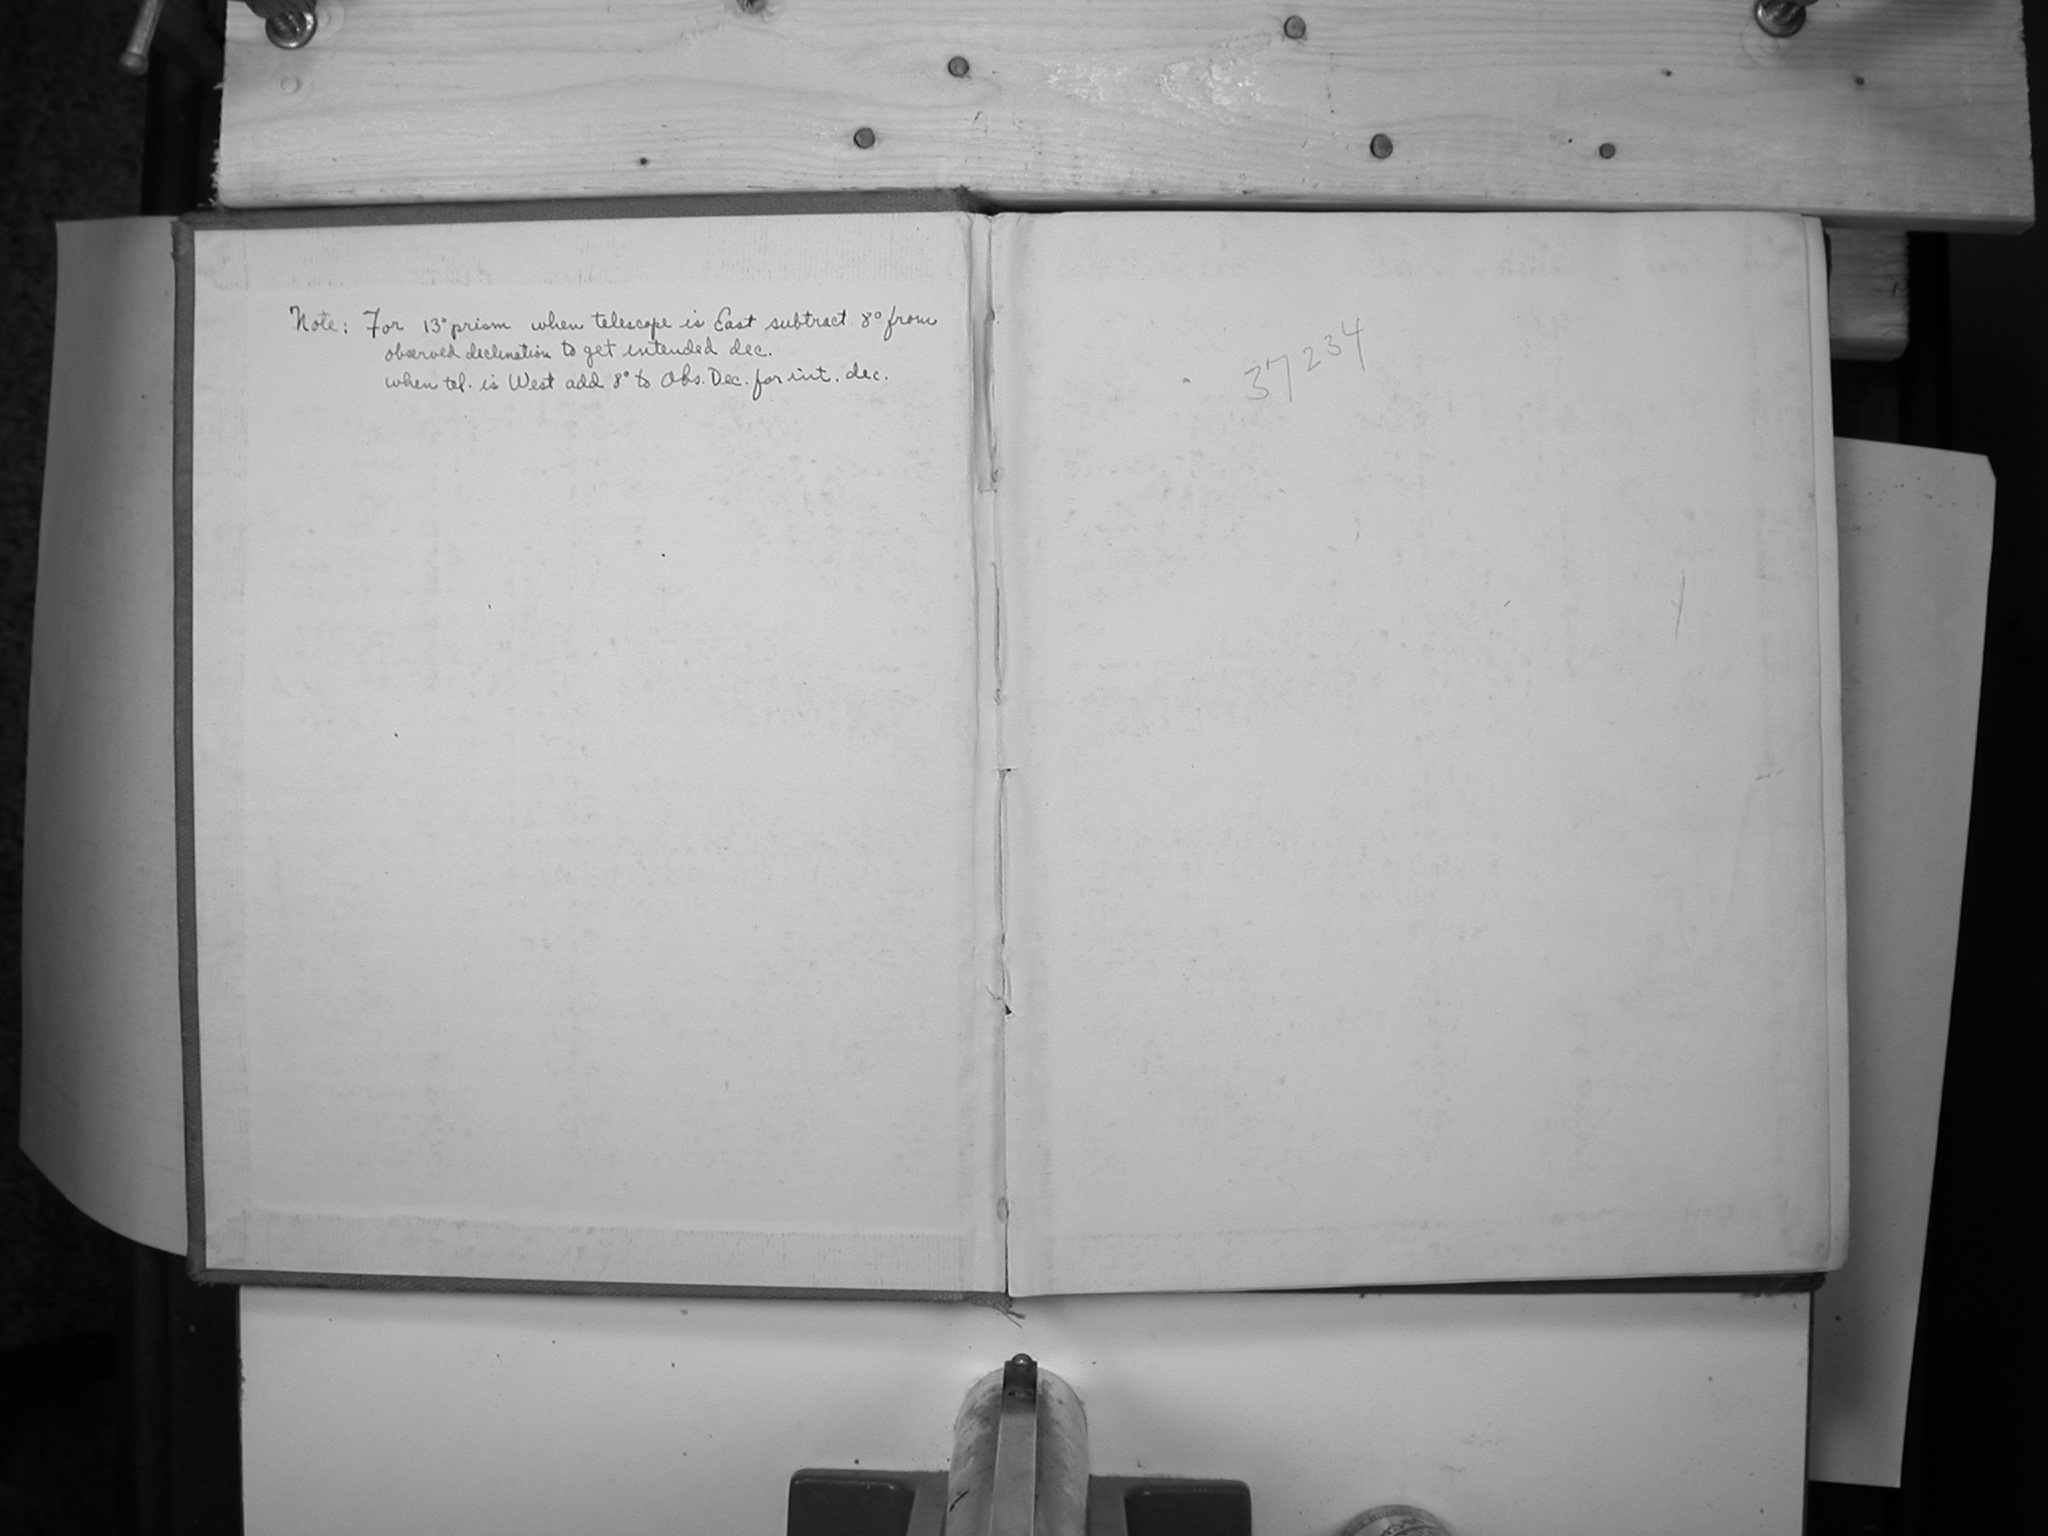 Note: For 13° prism when telescope is East subtract 8° from
observed declination to get intended dec.
when tel. is West add 8° to Obs. Dec. for int. dec.
37234